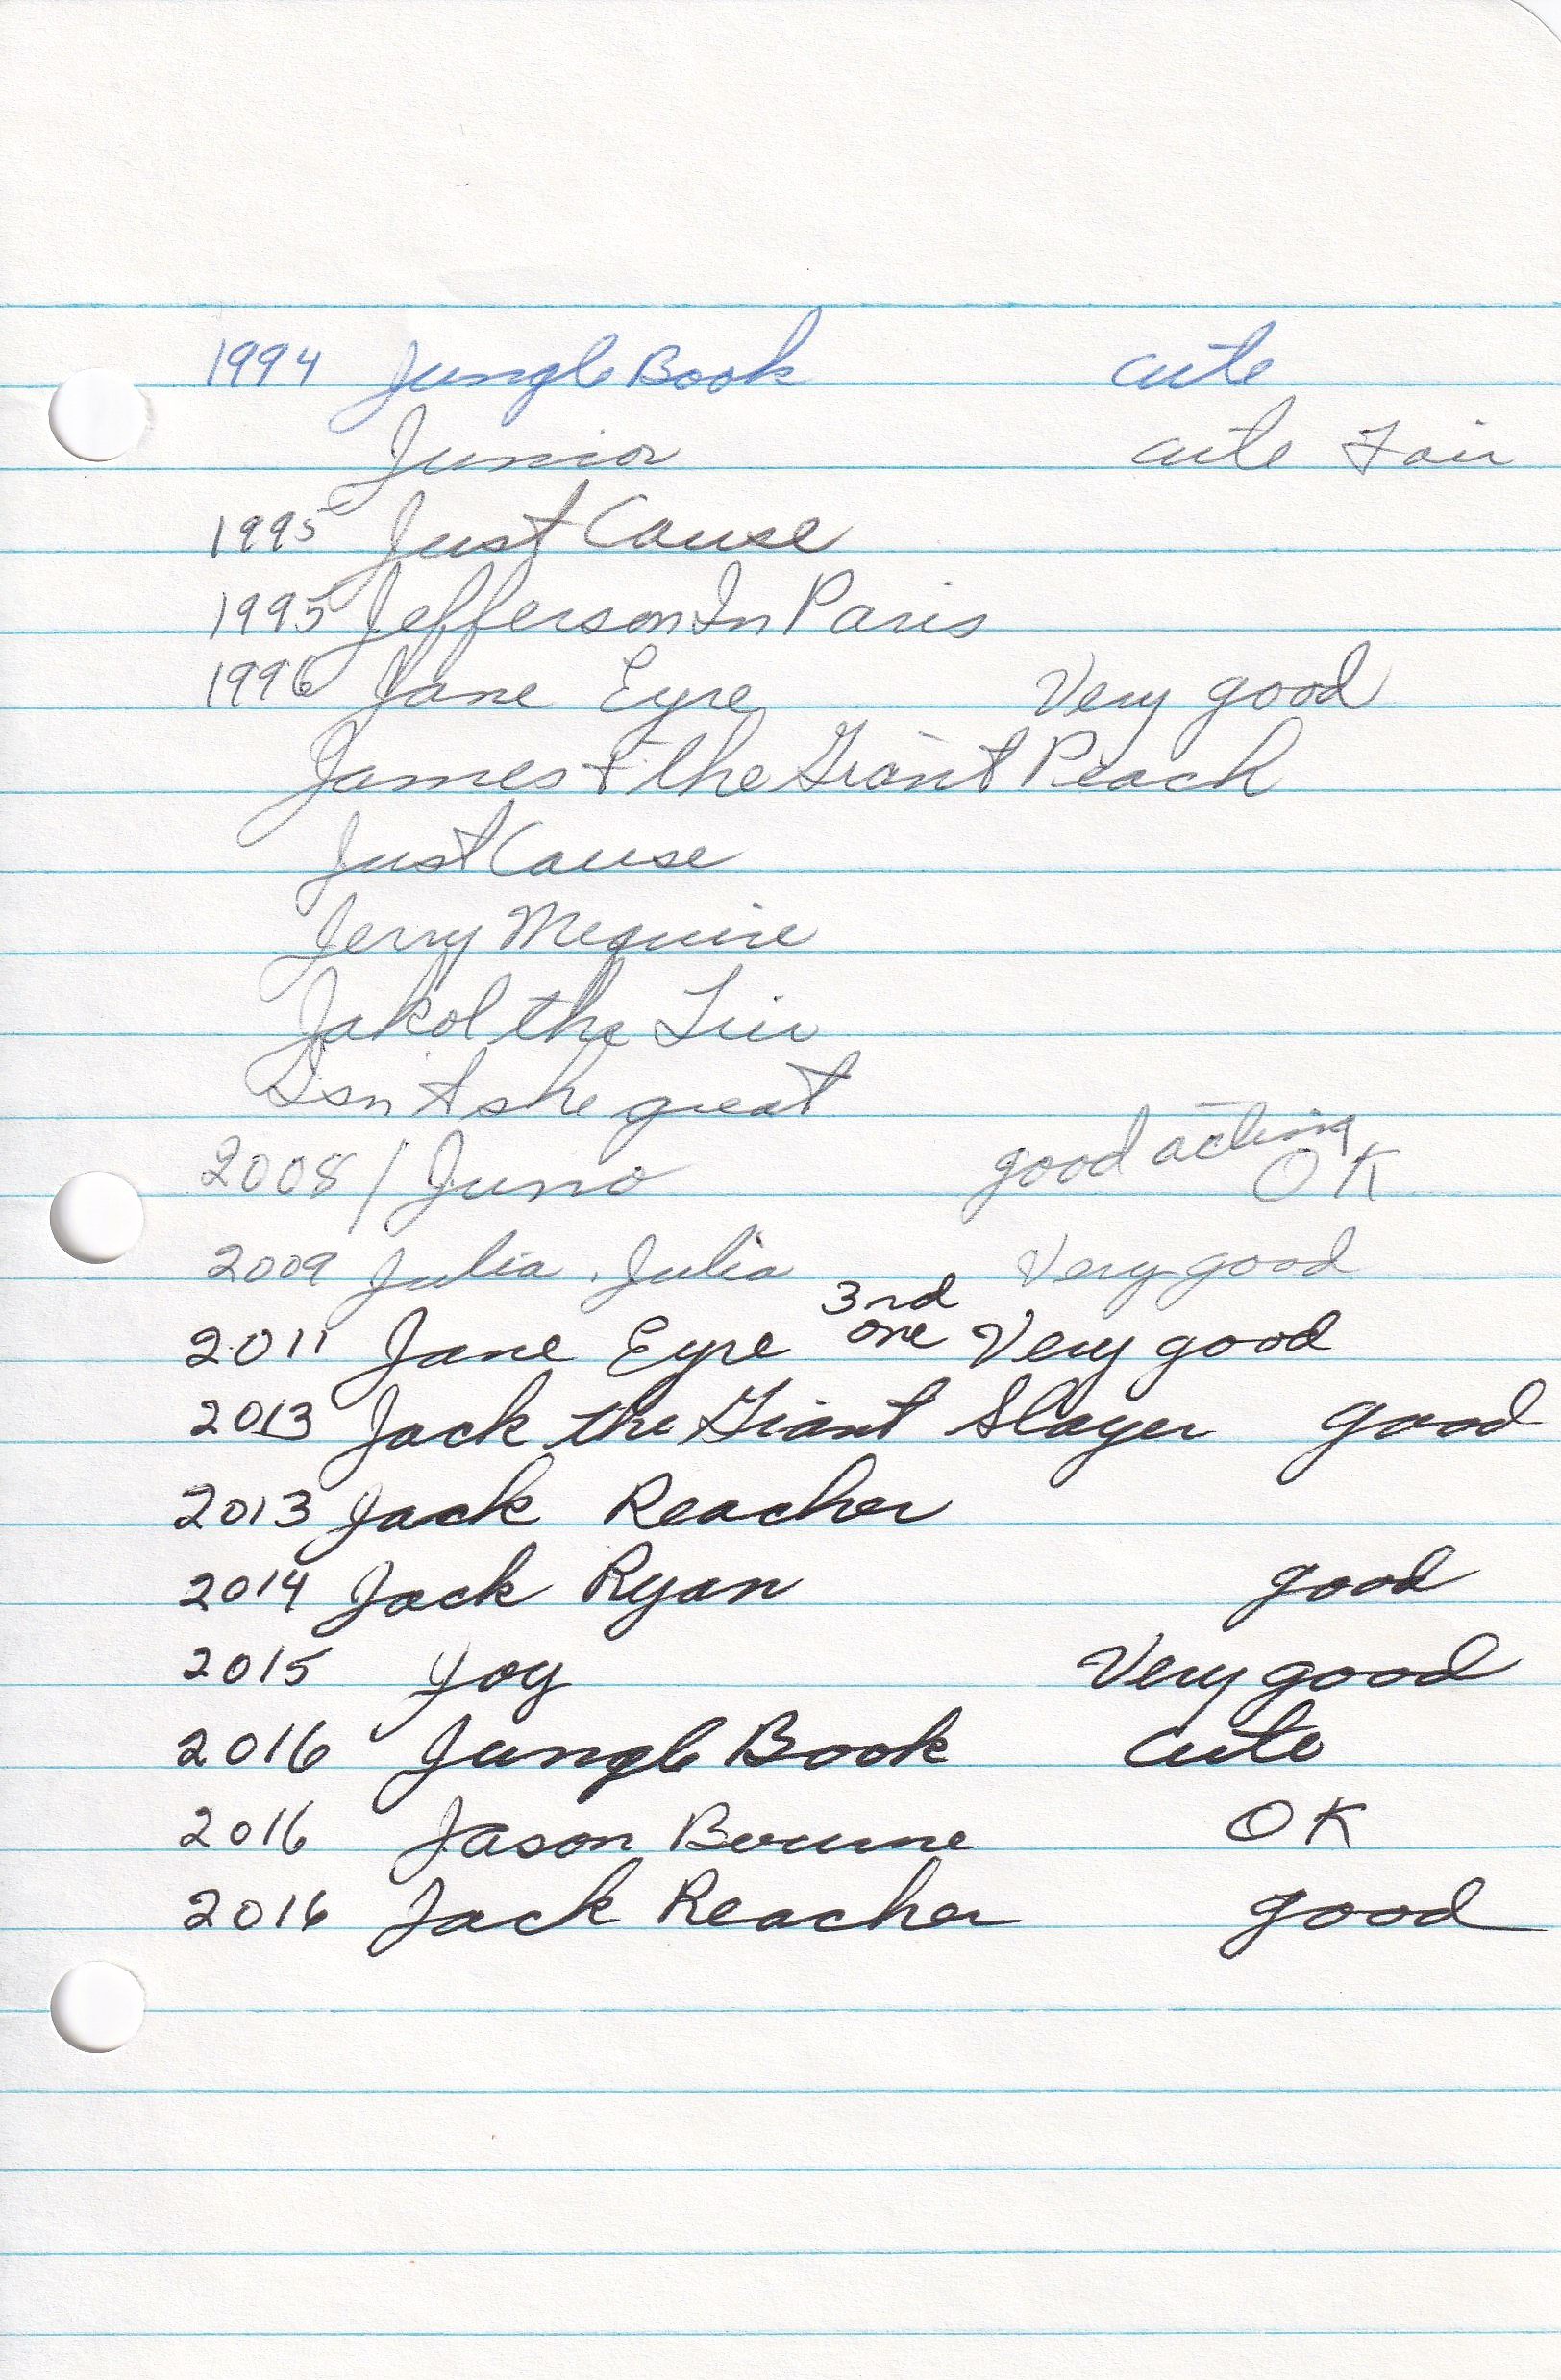 1994 Jungle Book cute
Junior cute Fair
1995 Just Cause
1995 Jefferson In Paris
1996 Jane Eyre Very good
James + the Giant Peach
Just Cause
Jerry Meguire
Jakol the Liir
Isn't she great
2008 / Juno good acting OK
2009 Julia . Julia Very good
2011 Jane Eyre 3rd one Very good
2013 Jack the Giant Slayer good
2013 Jack Reacher
2014 Jack Ryan good
2015 Joy Very good
2016 Jungle Book cute
2016 Jason Bourne OK
2016 Jack Reacher good